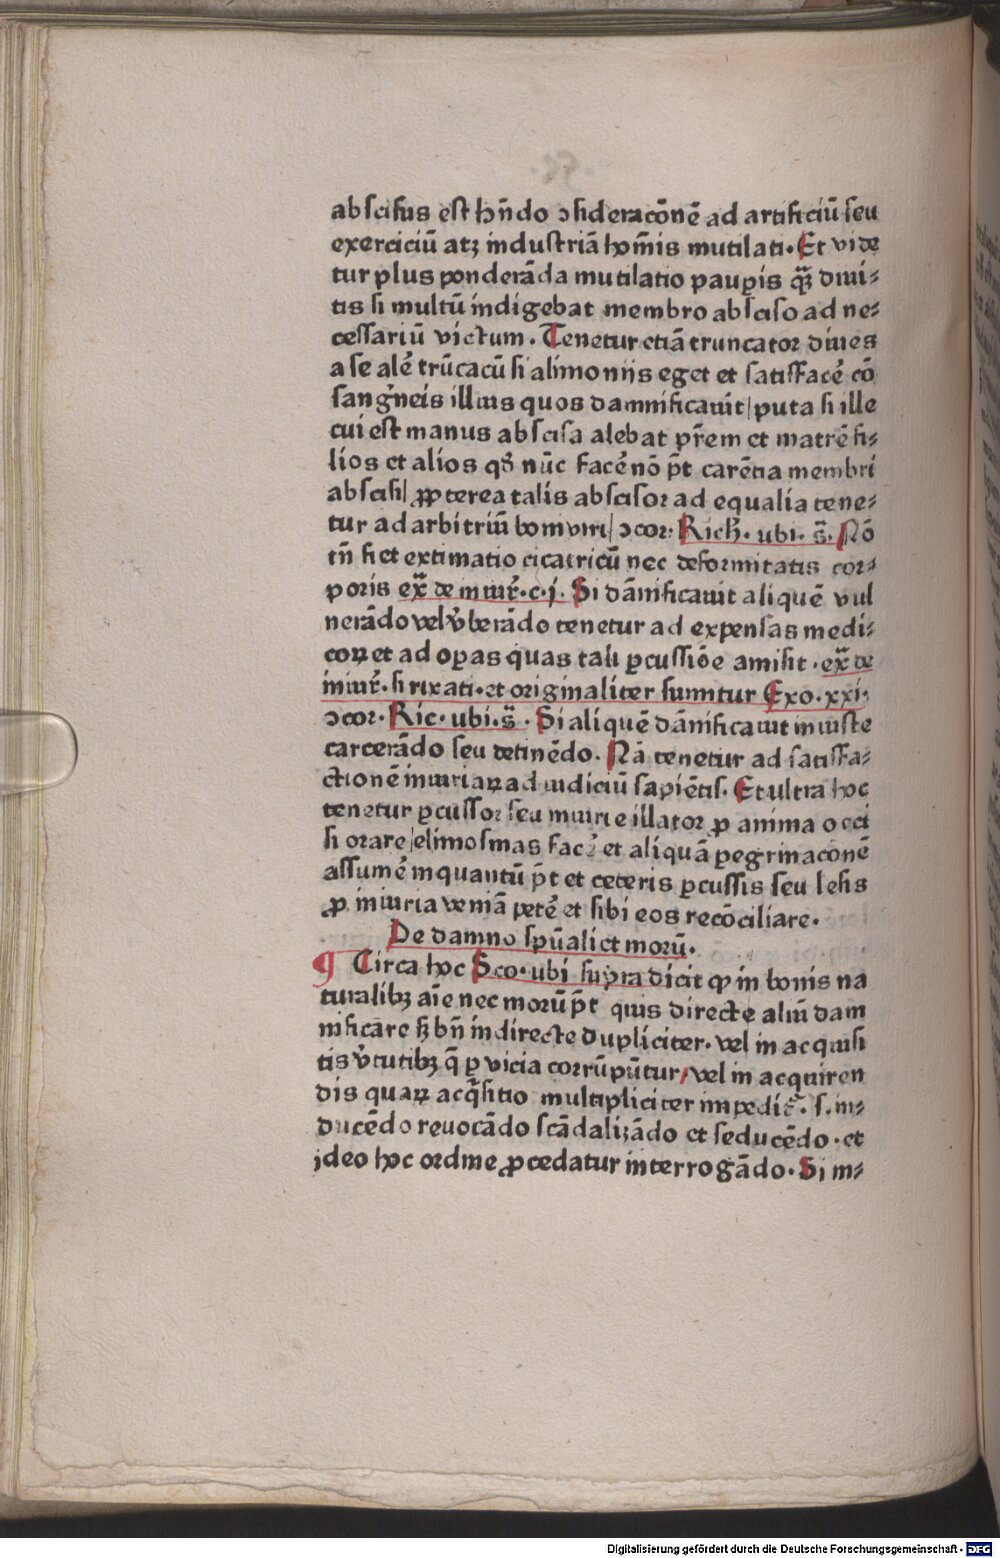 abscisus est hñdo ↄsideracõnẽ ad artificiũ seu
exerciciũ atꝫ industriã hom̃is mutilati. Et vide
tur plus ponderãda mutilatio pauꝑis qᷓꝫ diui⸗
tis si multũ indigebat membro absciso ad ne⸗
cessariũ victum. Tenetur etiã truncator diues
a se alẽ trũcacũ si alimoniis eget et satisfacẽ cõ
sang̃neis illius quos damnificauit/ puta si ille
cui est manus abscisa alebat pr̃em et matrẽ fi⸗
lios et alios qđ nũc facẽ nõ p̃t carẽtia membri
abscisi/ ꝓpterea talis abscisor ad equalia tene⸗
tur ad arbitriũ boni viri/ ↄcor. Rich. ubi. s̃. Nõ
tñ fiet extimatio cicatricũ nec deformitatis cor⸗
poris ex̃ de iniur̃. c. j. Si dãnificauit aliquẽ vul
nerãdo vel v̾berãdo tenetur ad expensas medi⸗
coꝝ et ad oꝑas quas tali ꝑcussiõe amisit. ex̃ de
iniur̃. si rixati. et originaliter sumitur Exo. xxi.
ↄcor. Ric. ubi. s̃. Si aliquẽ dãnificauit iniuste
carcerãdo seu detinẽdo. Nã tenetur ad satisfa⸗
ctionẽ iniuriaꝝ ad iudiciũ sapiẽtis. Et ultra hoc
tenetur ꝑcussor seu iniurie illator ꝓ anima occi
si orare/ elimosinas facẽ et aliquã ꝑegrinaconẽ
assumẽ inquantũ p̃t et ceteris ꝑcussis seu lesis
ꝓ iniuria veniã petẽ et sibi eos recõciliare.
De damno spũali et morũ.
¶ Circa hoc Sco. ubi supra dicit ꝙ in bonis na
turalibꝫ aĩe nec morũ p̃t quis directe aliũ dam
nificare sꝫ bñ indirecte dupliciter. vel in acquisi
tis v̾tutibꝫ q̃ ꝑ vicia corrũpũtur/ vel in acquiren
dis quaꝝ acq̃sitio multipliciter impedit᷑. s. in⸗
ducẽdo reuocãdo scãdalizãdo et seducẽdo. et
ideo hoc ordine ꝓcedatur interrogãdo. Si in⸗
Digitalisierung gefördert durch die Deutsche Forschungsgemeinschaft - DFG